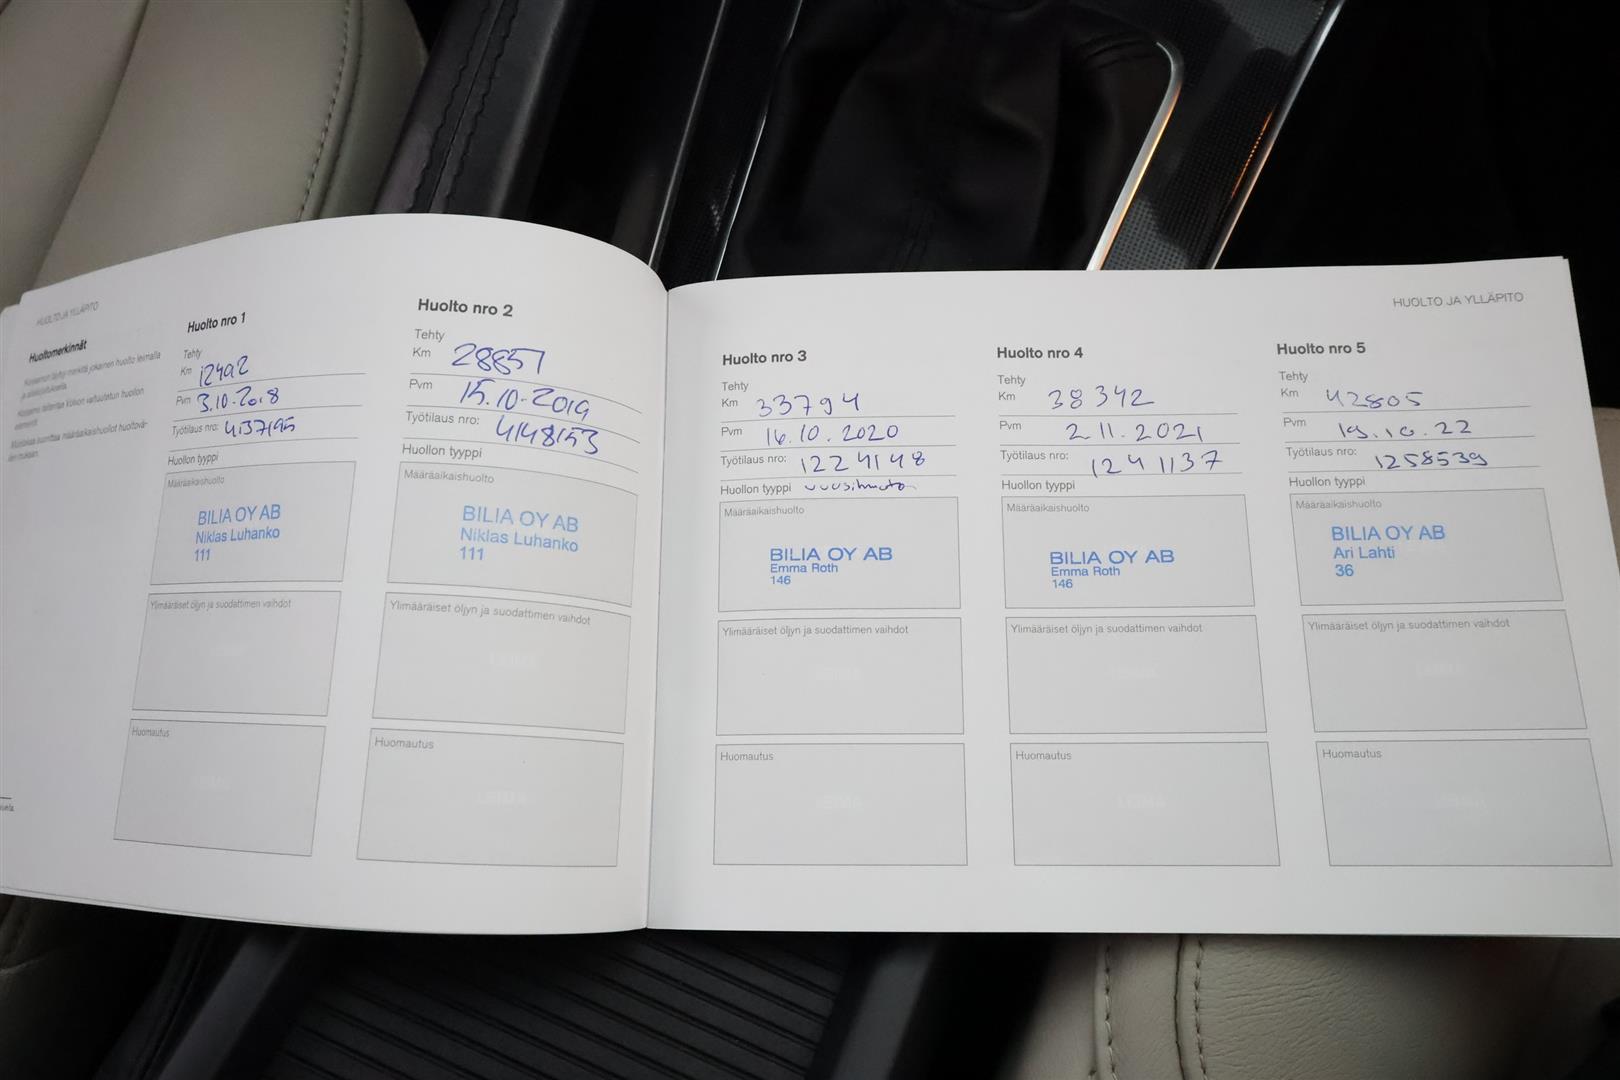 HUOLTO JA YLLÄPITO
Huoltomerkinnät
Huolto nro 1
Tehty
Km 12492
Pvm 3.10.2018
Työtilaus nro: 4137195
Huollon tyyppi
Määräaikaishuolto
BILIA OY AB
Niklas Luhanko
111
Ylimääräiset öljyn ja suodattimen vaihdot
LEIMA
Huomautus
LEIMA
Huolto nro 2
Tehty
Km 28857
Pvm 15.10-2019
Työtilaus nro: 4148153
Huollon tyyppi
Määräaikaishuolto
BILIA OY AB
Niklas Luhanko
111
Ylimääräiset öljyn ja suodattimen vaihdot
LEIMA
Huomautus
LEIMA
HUOLTO JA YLLÄPITO
Huolto nro 3
Tehty
Km 33794
Pvm 16.10.2020
Työtilaus nro: 1224148
Huollon tyyppi vuosihuolto
Määräaikaishuolto
BILIA OY AB
Emma Roth
146
Ylimääräiset öljyn ja suodattimen vaihdot
LEIMA
Huomautus
LEIMA
Huolto nro 4
Tehty
Km 38342
Pvm 2.11.2021
Työtilaus nro: 1241137
Huollon tyyppi
Määräaikaishuolto
BILIA OY AB
Emma Roth
146
Ylimääräiset öljyn ja suodattimen vaihdot
LEIMA
Huomautus
LEIMA
Huolto nro 5
Tehty
Km 42805
Pvm 19.10.22
Työtilaus nro: 1258539
Huollon tyyppi
Määräaikaishuolto
BILIA OY AB
Ari Lahti
36
Ylimääräiset öljyn ja suodattimen vaihdot
LEIMA
Huomautus
LEIMA